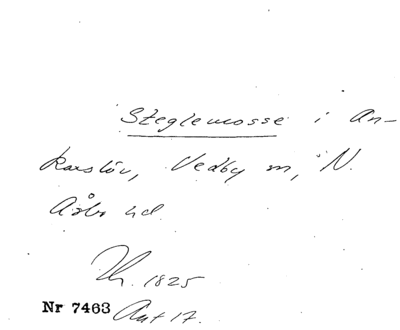 Steglemosse i An-
karslöv, Vedby sn, N.
Åsbo hd.
Th. 1825
Nr 7463 Ant 17.